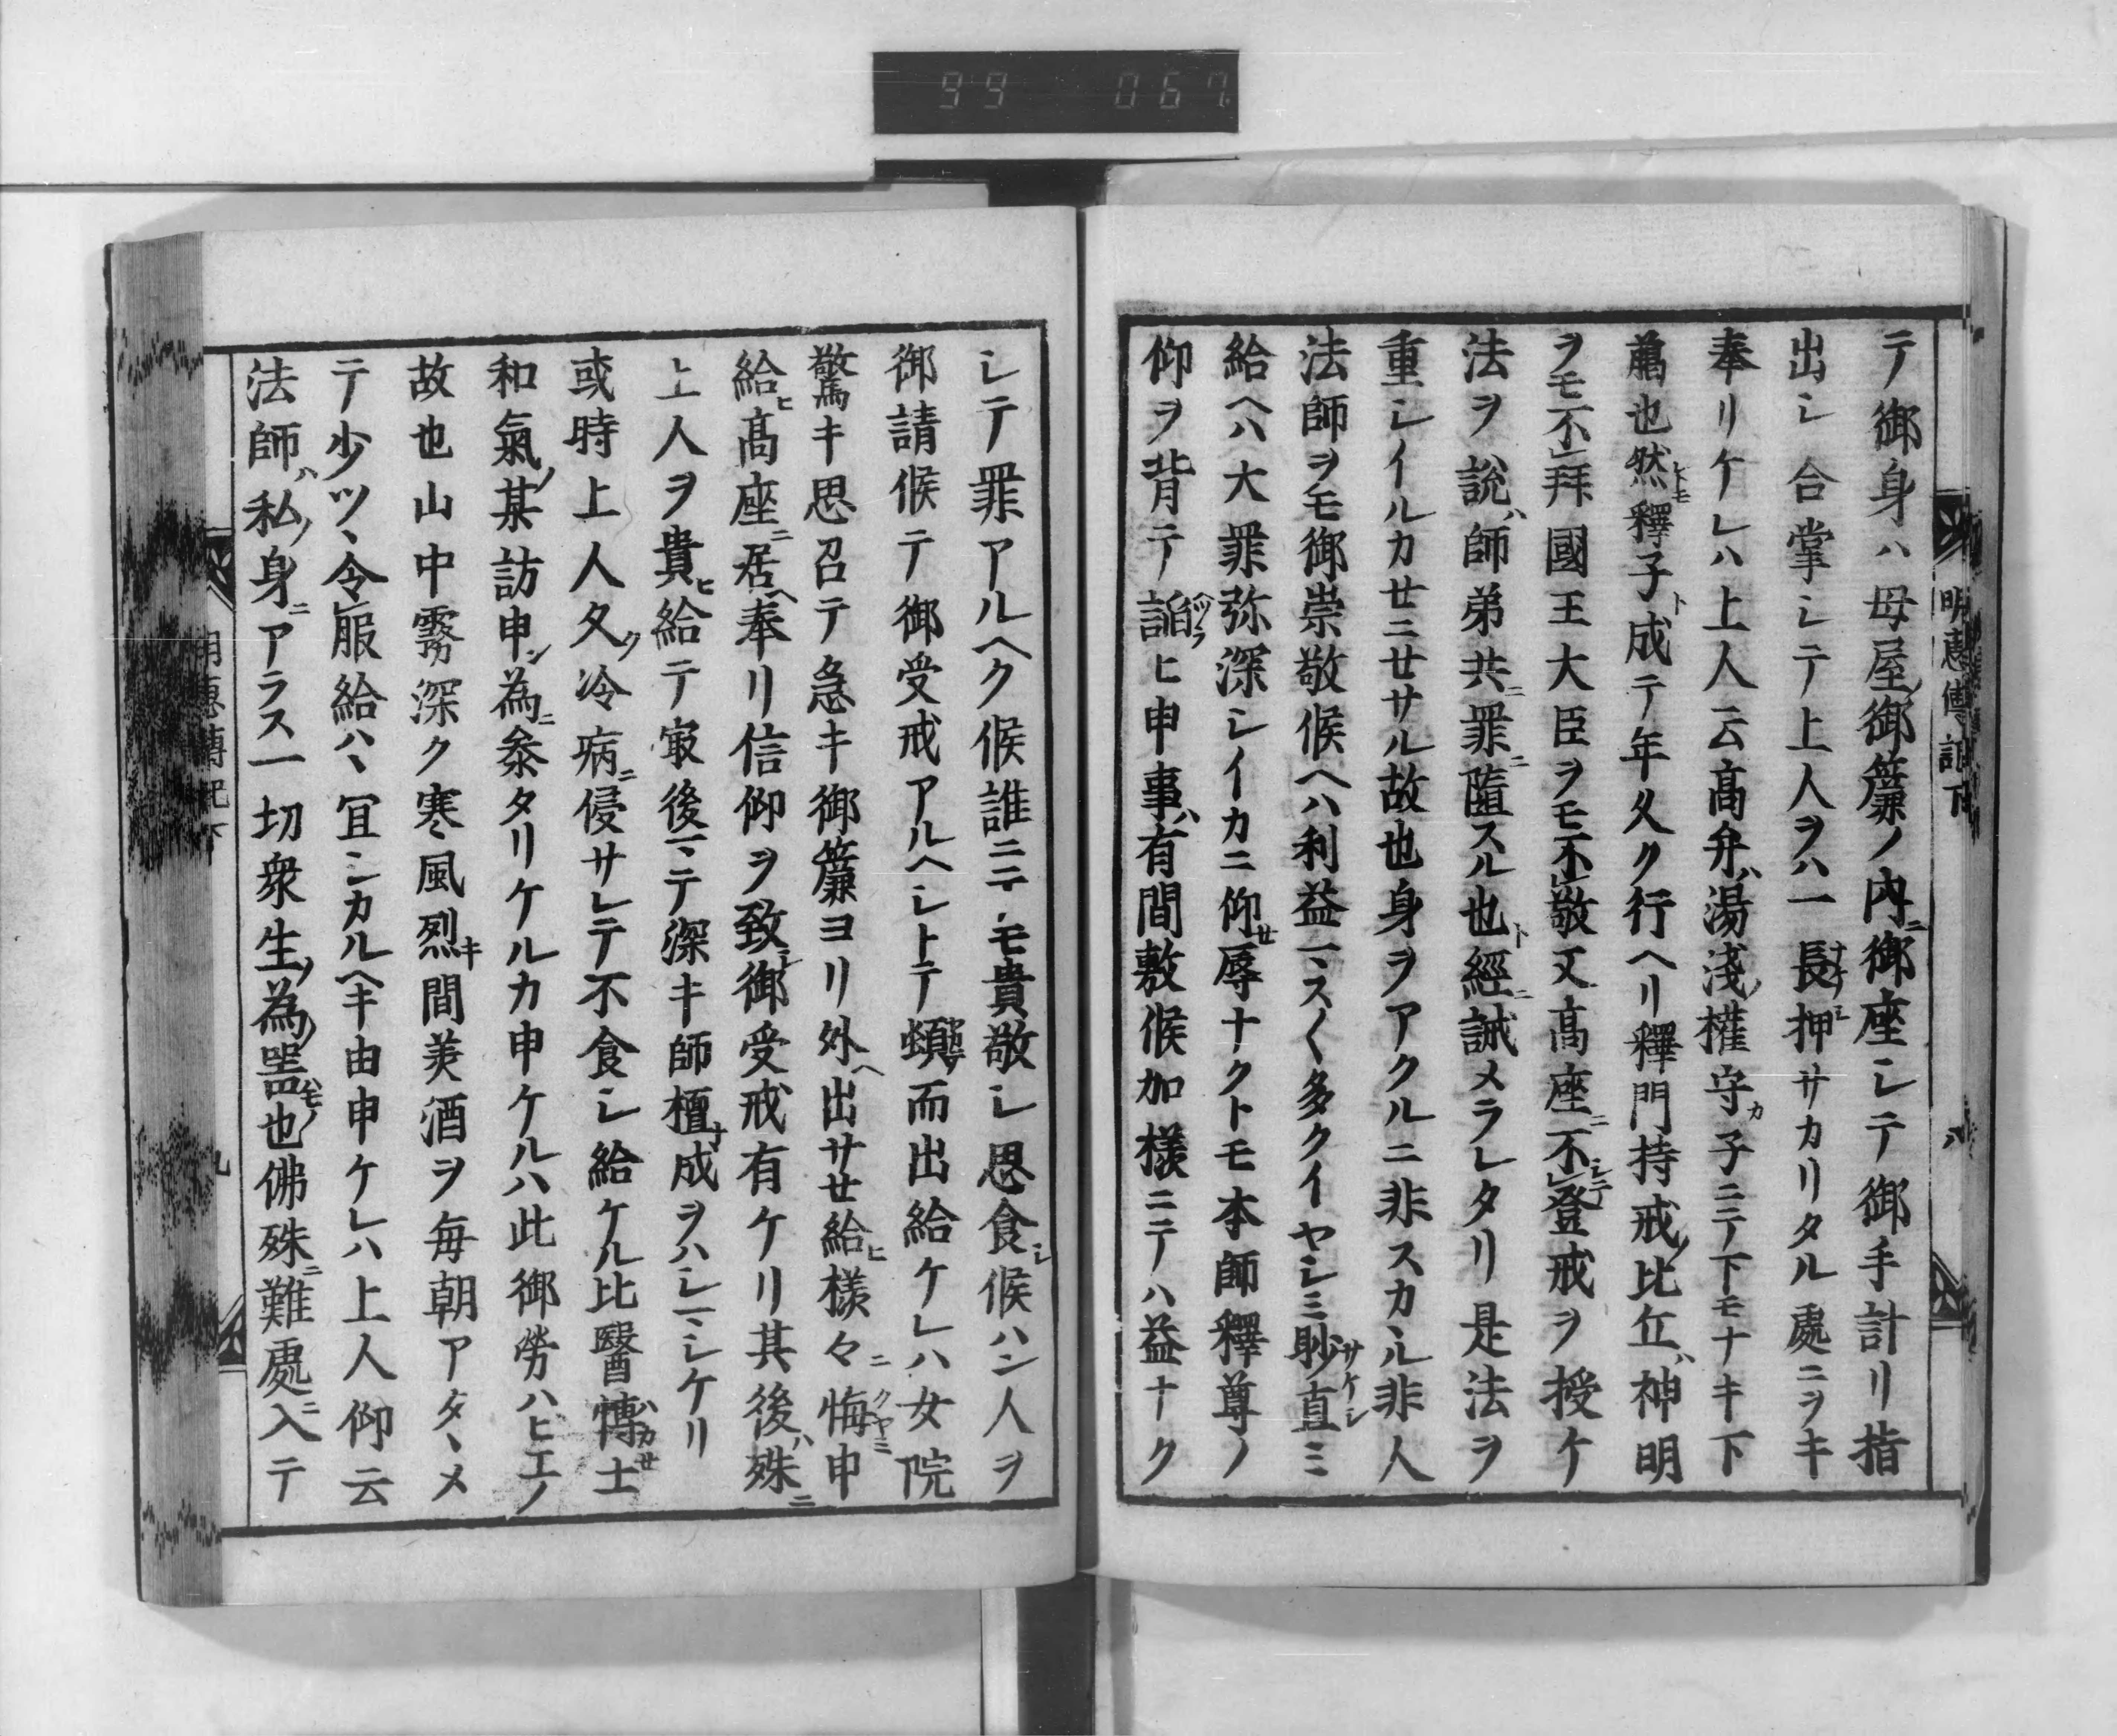 99 067
明恵傳記下 八
テ御身ハ母屋ノ御簾ノ内ニ御座シテ御手計リ指
出シ合掌シテ上人ヲハ一長押サカリタル處ニヲキ
奉リケレハ上人云高弁ハ湯淺ノ權守カ子ニテ下モナキ下
﨟也然トモ釋子ト成テ年久ク行ヘリ釋門持戒ノ比丘ハ神明
ヲモ不拜國王大臣ヲモ不敬又高座ニ不シテ登戒ヲ授ケ
法ヲ說ハ師弟共ニ罪ニ墮スル也ト經ニ誡メラレタリ是法ヲ
重シイルカセニせサル故也身ヲアクルニ非スカヽル非人
法師ヲモ御崇敬候ヘハ利益マスく多クイヤシミ眇直ミ
給ヘハ大罪弥深シイカニ仰せ辱ナクトモ本師釋尊ノ
仰ヲ背テ諂ヒ申事ハ有間敷候加樣ニテハ益ナク
シテ罪アルヘク候誰ニテモ貴敬シ思食シ候ハン人ヲ
御請候テ御受戒アルヘシトテ頓而出給ケレハ女院
驚キ思召テ急キ御簾ヨリ外ヘ出サせ給ヒ樣々ニ悔申
給ヒ高座ニ居ヘ奉リ信仰ヲ致シ御受戒有ケリ其後ハ殊ニ
上人ヲ貴ヒ給テ㝡後マテ深キ師檀ナ成ヲハシマシケリ
或時上人久ク冷病ニ侵サレテ不食シ給ケル比醫博士
和氣ノ某訪申ン為ニ叅タリケルカ申ケルハ此御勞ハヒエノ
故也山中霧深ク寒風烈キ間美酒ヲ每朝アタヽメ
テ少ツヽ令服給ハヽ冝シカルヘキ由申ケレハ上人仰云
法師ハ私ノ身ニアラス一切衆生ノ為ノ噐也佛殊ニ難處ニ入テ
明恵傳記下 九